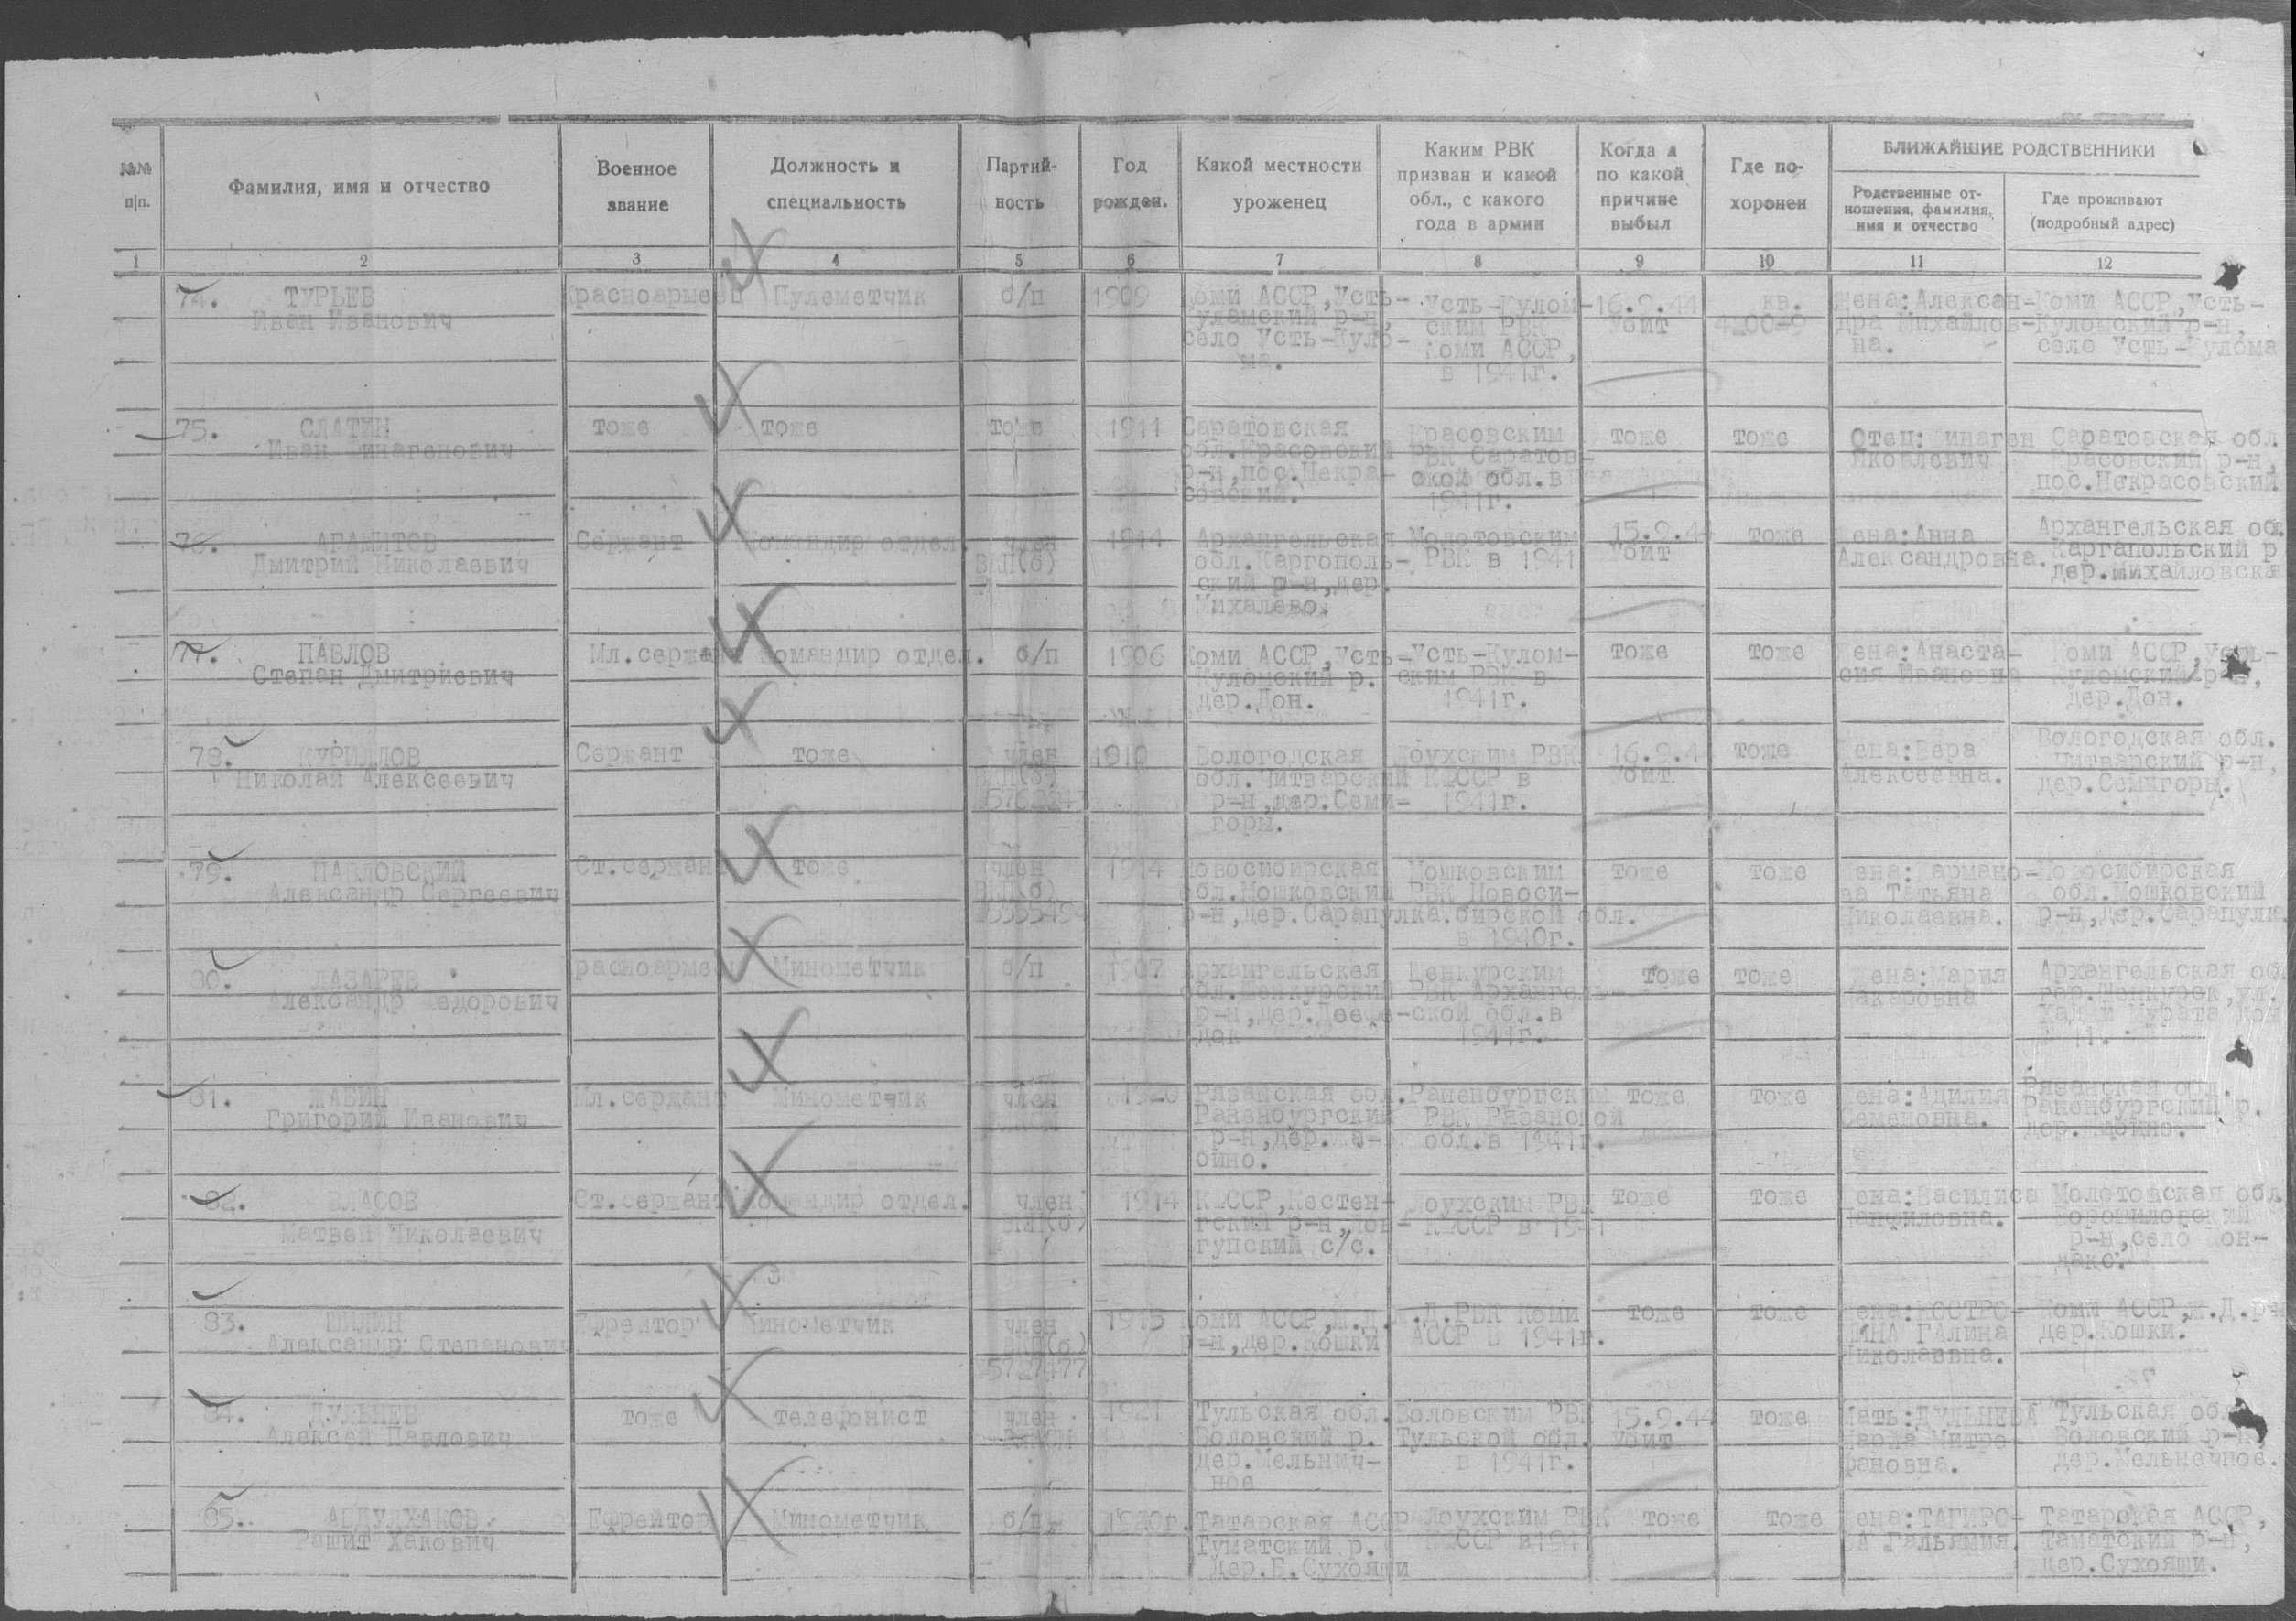 №№ п|п.
Фамилия, имя и отчество
Военное звание
Должность и специальность
Партий-ность
Год рожден.
Какой местности уроженец
Каким РВК призван и какой обл., с какого года в армии
Когда и по какой причине выбыл
Где по-хоронен
БЛИЖАЙШИЕ РОДСТВЕННИКИ
Родственные от-ношения, фамилия, имя и отчество
Где проживают (подробный адрес)
1 2 3 4 5 6 7 8 9 10 11 12
74. ТУРЬЕВ Красноармеец Пулеметчик б/п 1909 Коми АССР,Усть- Усть-Кулом- 16.9.44 кв. Жена:Алексан- Коми АССР,Усть-
Иван Иванович Куломский р-н, ским РВК Убит дра Михайлов- Куломский р-н,
село Усть-Куло- Коми АССР, на. село Усть-Кулома
ма. в 1941г.
75. СЛАТИН тоже тоже тоже 1911 Саратовская Красовским тоже тоже Отец: Саратовская обл
Иван обл.Красовский РВК Саратов- Яковлевич Красовский р-н,
р-н,пос.Некра- ской обл.в пос.Некрасовский
совский. 1941г.
76. Сержант Командир отдел. член 1914 Архангельская Молотовским 15.9.44 тоже Жена:Анна Архангельская об
Дмитрий Николаевич ВКП(б) обл.Каргополь- РВК в 1941 Убит Александровна. Каргапольский р
ский р-н,дер. дер.Михайловска
Михалево.
77. ПАВЛОВ Мл.сержант Командир отдел. б/п 1906 Коми АССР,Усть- Усть-Кулом- тоже тоже Жена:Анаста- Коми АССР,Усть-
Степан Дмитриевич Куломский р. ским РВК в сия Ивановна Куломский р-н,
дер.Дон. 1941г. дер.Дон.
78. КУРИЛЛОВ Сержант тоже член 1910 Вологодская Лоухским РВК 16.9.44 тоже Жена:Вера Вологодская обл.
Николай Алексеевич ВКП(б) обл.Читварский КФССР в Убит Алексеевна. Читварский р-н,
р-н,дер.Семи- 1941г. дер.Семигоры.
горы.
79. ПАВЛОВСКИЙ Ст.сержант тоже член 1914 Новосибирская Мошковским тоже тоже Жена: Новосибирская
Александр Сергеевич ВКП(б) обл.Мошковский РВК Новоси- Татьяна обл.Мошковский
р-н,дер.Сарапулка. бирской обл. Николаевна. р-н,дер.Сарапулк
в 1940г.
80. ЛАЗАРЕВ Красноармеец Минометчик б/п 1907 Архангельская Шенкурским тоже тоже Жена:Мария Архангельская об
Александр Федорович обл.Шенкурский РВК Архангель- Макаровна гор.Шенкурск,ул.
р-н,дер. ской обл.в
1941г. 11.
81. Мл.сержант Минометчик член 1920 Рязанская обл. Раненбургским тоже тоже Жена: Рязанская обл.
Григорий Иванович Раненбургский РВК Рязанской Семеновна. Раненбургский р.
р-н,дер. обл.в 1941г.
бино.
82. ВЛАСОВ Ст.сержант Командир отдел. член 1914 КФССР,Кестен- Лоухским РВК тоже тоже Жена:Василиса Молотовская обл
Матвей Николаевич ВКП(б) гский р-н, КФССР в 1941 Панфиловна. Ворошиловский
гупский с/с. р-н,село
83. ШИЛИН Ефрейтор Минометчик член 1915 Коми АССР,Ж.Д. Ж.Д.РВК Коми тоже тоже Жена:КОСТРО- Коми АССР,Ж.Д.р-
Александр Степанович ВКП(б) р-н,дер.Кошки АССР в 1941г. Галина дер.Кошки.
5727477 Николаевна.
84. ДУЛЬНЕВ тоже телефонист член 1921 Тульская обл. Воловским РВК 15.9.44 тоже Мать:ДУЛЬНЕВА Тульская обл
Алексей Павлович Воловский р. Тульской обл. Убит Митро- Воловский р-н,
дер.Мельнич- в 1941г. фановна. дер.Мельнечное.
ное
85. АБДУЛХАКОВ Ефрейтор Минометчик б/п 1920г. Татарская АССР Лоухским РВК тоже тоже Жена:ТАГИРО- Татарская АССР,
Рашит Хакович Туматский р. КФССР в 194 ВА Таматский р-н,
дер.Б.Сухояши дер.Сухояши.